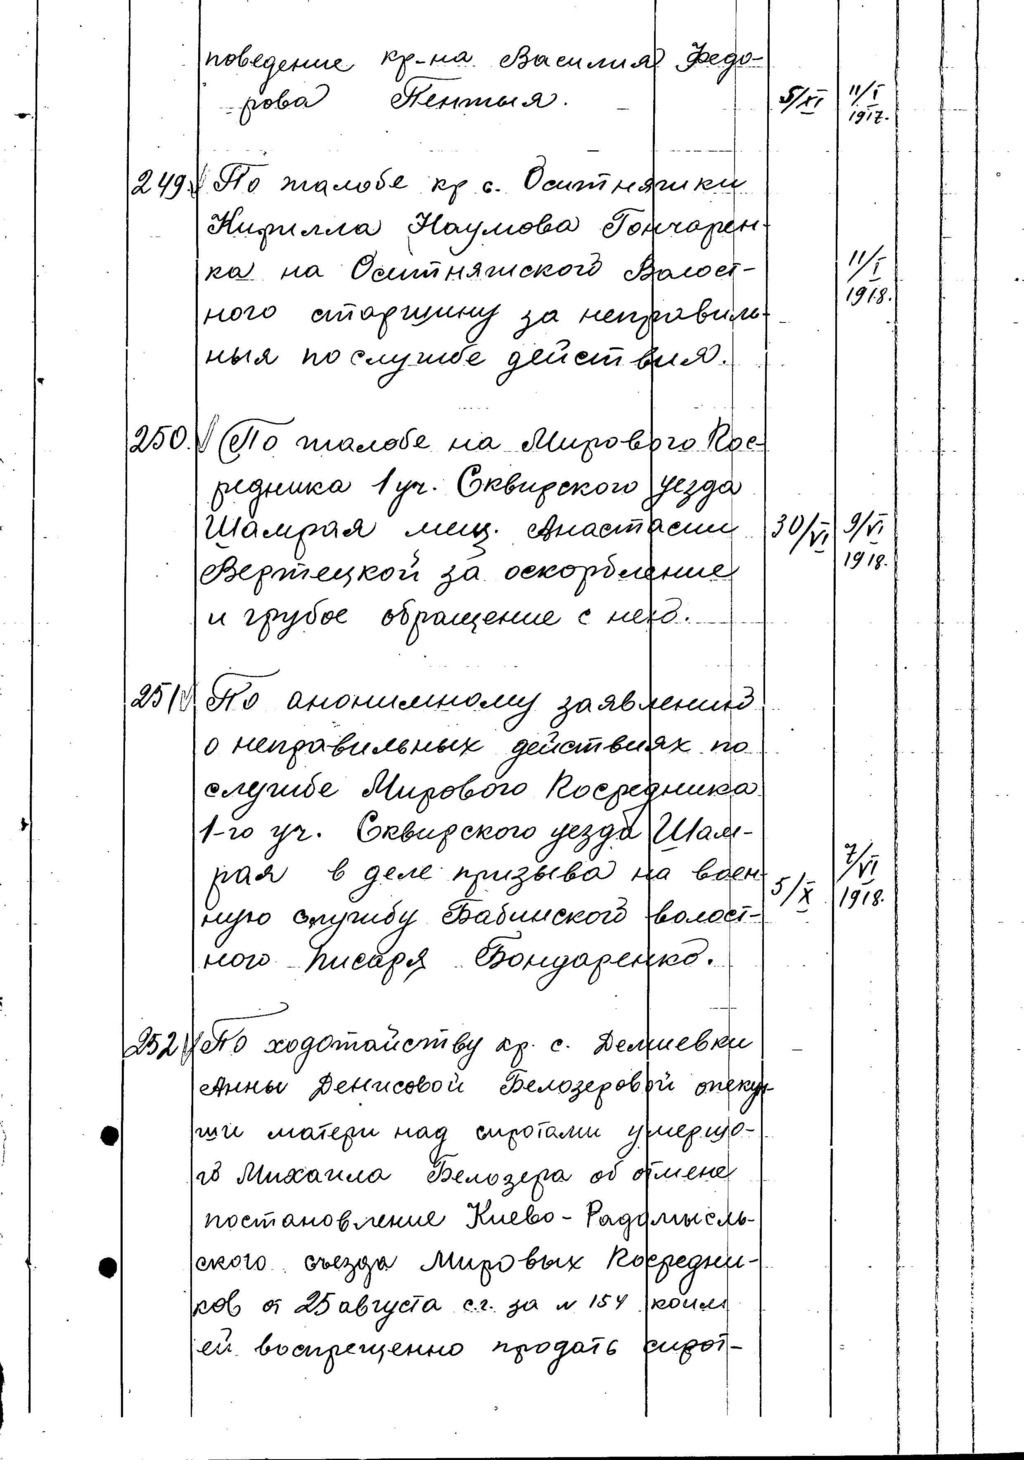 поведение кр-на Василия Федо-
рова Пентыя. 5/XI 11/I
1917.
249. По жалобе кр с. Оситняжки
Кирилла Наумова Гончарен-
ка на Оситняжского Волост- 11/I
ного старшину за неправиль- 1918.
ныя по службе действия.
250. По жалобе на Мирового Пос-
редника 1 уч. Сквирского уезда
Шамрая мещ. Анастасии 30/VI 9/VI
Вертецкой за оскорбление 1918.
и грубое обращение с нею.
251 По анонимному заявлению
о неправильных действиях по
службе Мирового Посредника
1-го уч. Сквирского уезда Шам-
рая в деле призыва на воен- 5/X 7/VI
ную службу Бабинского волост- 1918.
ного писаря Бондаренко.
252 По ходотайству кр. с. Демиевки
Анны Денисовой Белозеровой опеку-
ши матери над сиротами умершо-
го Михаила Белозера об отмене
постановление Киево-Радомысль-
ского съезда Мировых Посредни-
ков от 25 августа с.г. за № 154 коим
ей воспрещенно продать сирот-